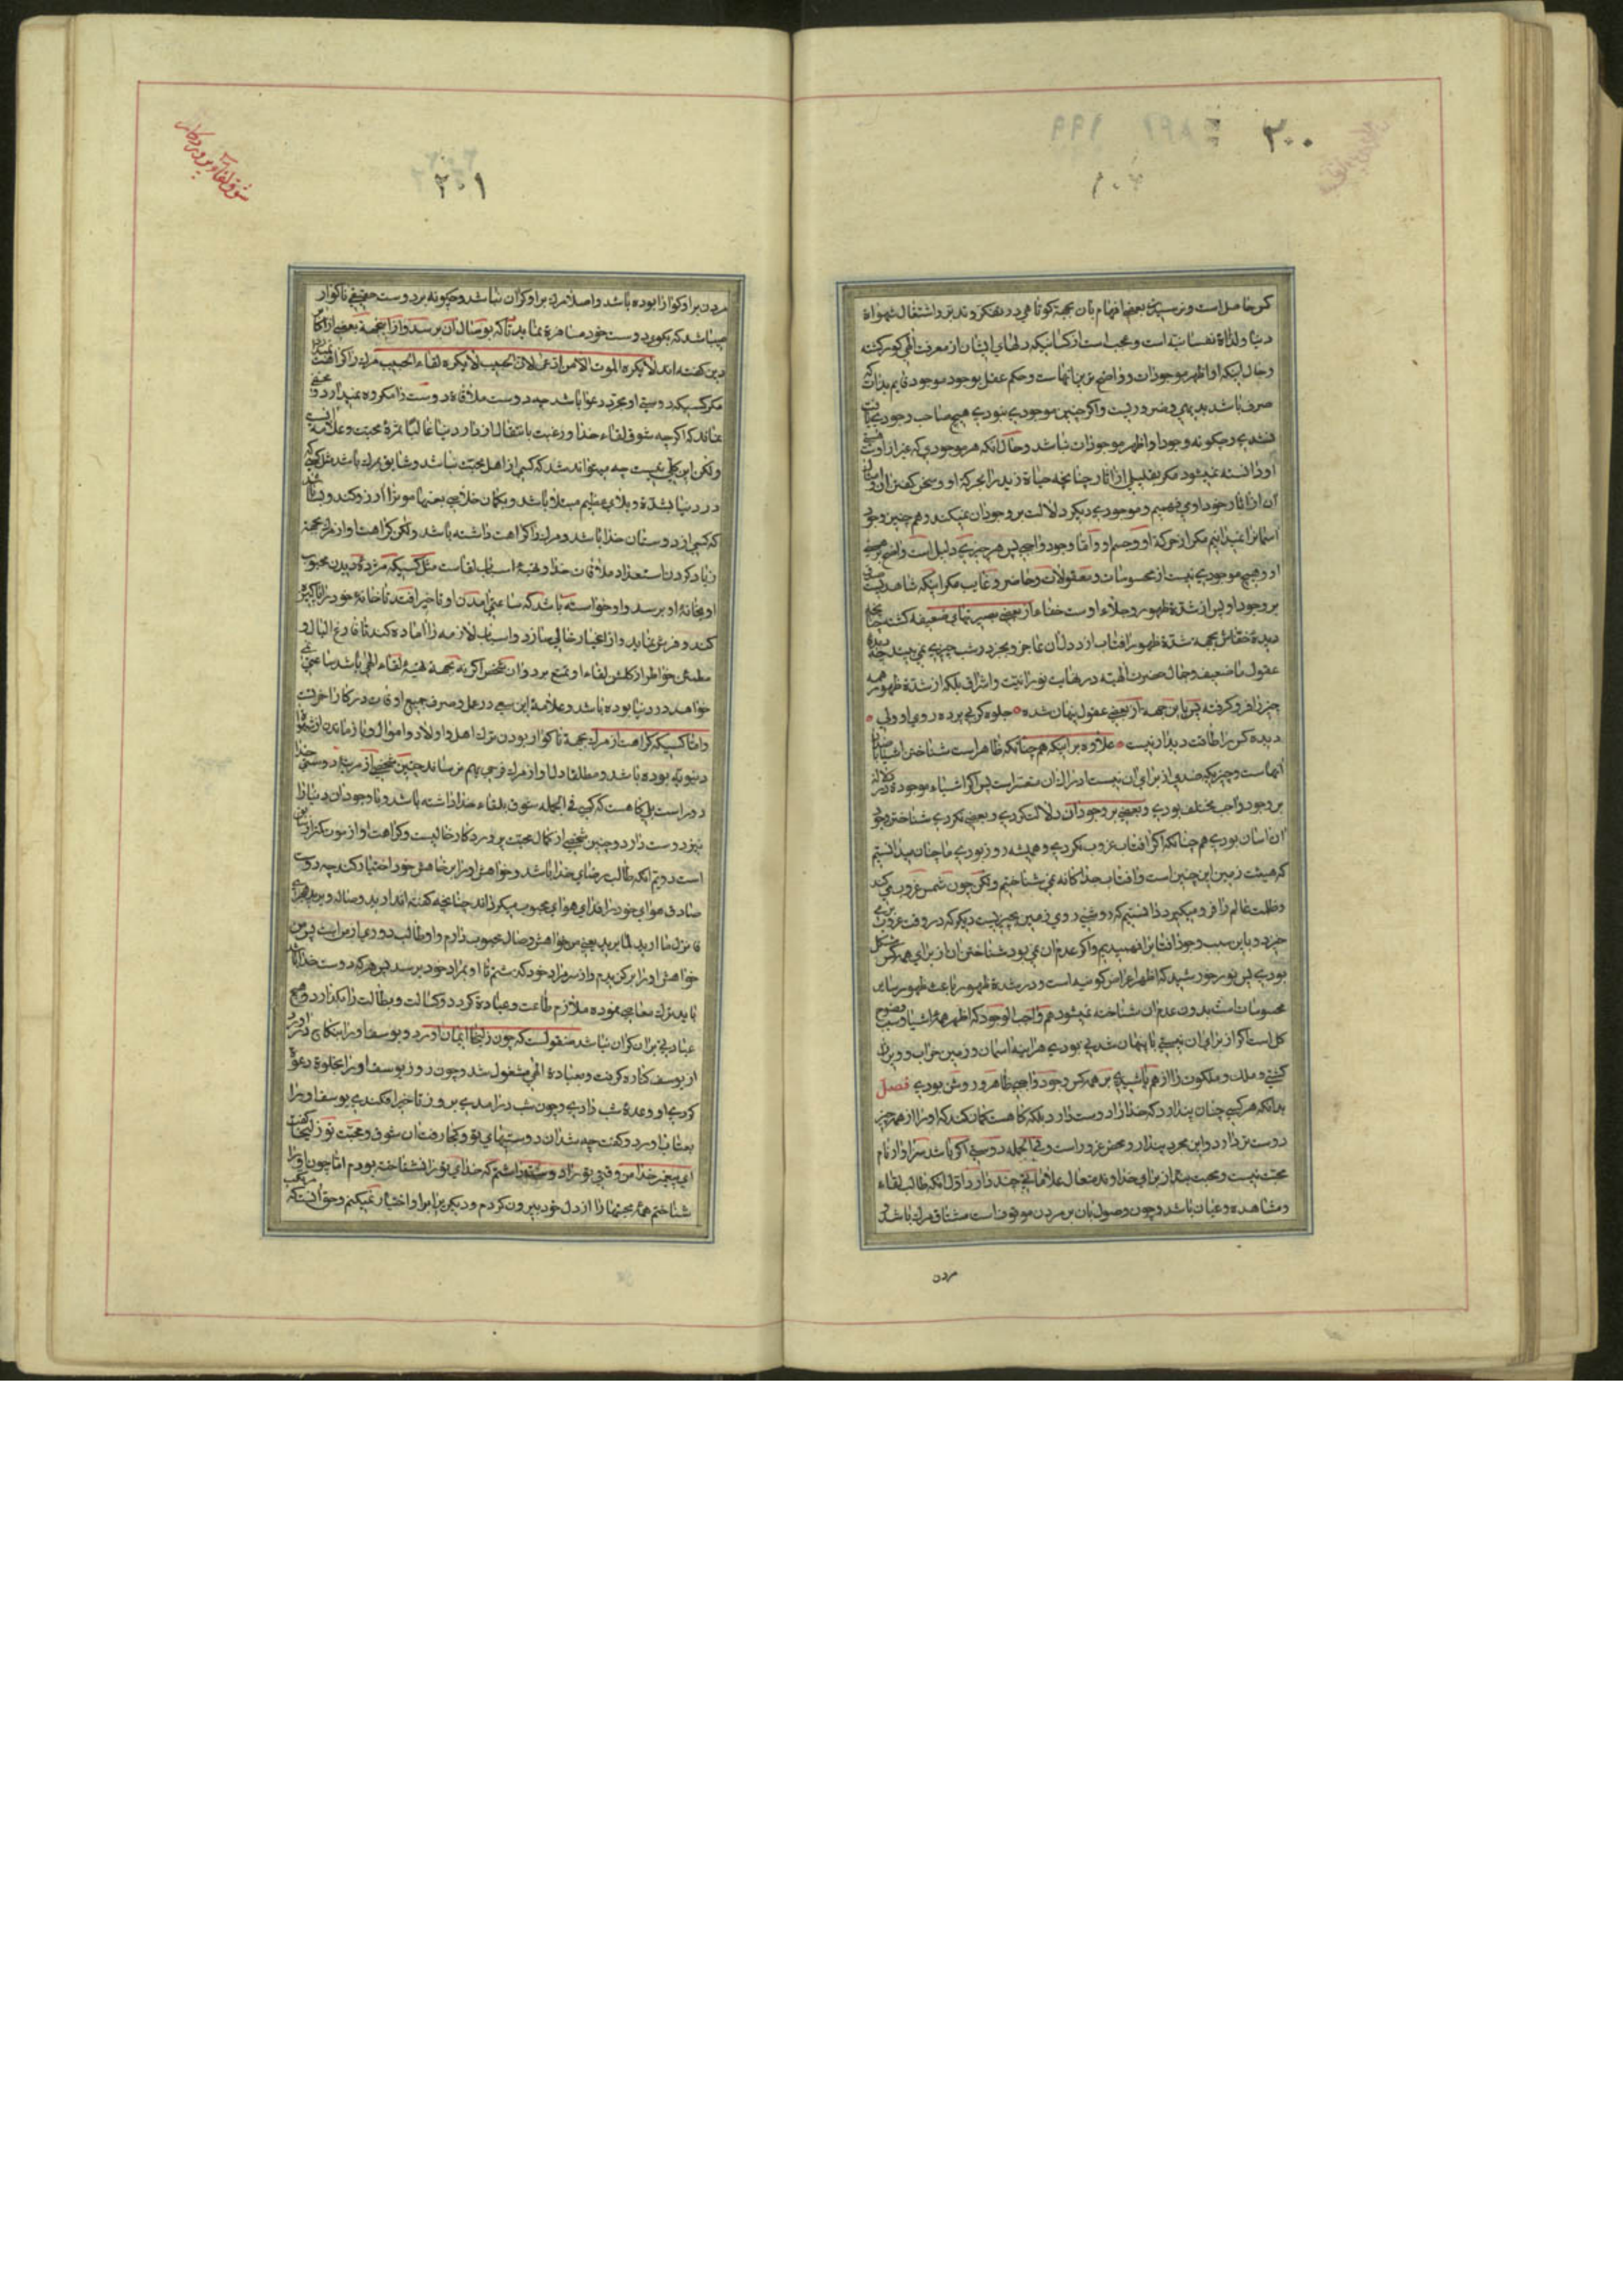 ۳۰۰
کس حاصل است و نرسیدن بعضی افهام بان بجهة کوتاهی در تفکر و تدبر و اشتغال بشهواة
دنیا و لذاة نفسانیه است و عجب است از کسانیکه دلهای ایشان از معرفت الهی کور گشته
و حال اینکه او اظهر موجودات و واضح ترین انهاست و حکم عقل بوجود موجود قایم بذات که
صرف باشد بدیهی و ضروریست و اگر چنین موجودی نبودی هیچ صاحب وجودی یافت
نشدی و چگونه وجود او اظهر موجودات نباشد و حال انکه هر موجودی که غیر از اوست
اورا نمیشود مگر بقلیلی از اثار چنانچه حیاة زید را بجز حرکة او و سخن گفتن ان و
ان از اثار وجود او می فهمیم و موجودی دیگر دلالت بر وجود ان نمیکند و هم چنین وجود
اسمانرا نمیدانیم مگر از حرکة او و جسم او و اما وجود واجب پس هر چیزی دلیل است واضح بر هستی
او و هیچ موجودی نیست از محسوسات و معقولات و حاضر و غایب مگر اینکه شاهدیست
بر وجود او پس از شدة ظهور و جلاء اوست خفاء از بعضی بصیرتهای ضعیفه گشته چنانچه
دیدهٔ خفاش بجهة شدة ظهور افتاب از دیدن ان عاجز و بجز در شب چیزی نمی بیند چه دیدهٔ
عقول ما ضعیف و جمال حضرت الهیه در نهایت نورانیت و اشراق بلکه از شدة ظهور همه
چیز را فرو گرفته پس باین جهة از بعضی عقول پنهان شده جلوه گر بی پرده روی او ولی
دیده کس را طاقت دیدار نیست علاوه بر اینکه هم چنانکه ظاهر است شناختن اشیا
انهاست و چیزیکه ضدی از برای ان نیست ادراک ان متعسر است پس اگر اشیاء موجوده
بر وجود واجب مختلف بودی و بعضی بر وجود ان دلالت کردی و بعضی نکردی شناختن وجود
ان اسان بودی هم چنانکه اگر افتاب غروب نکردی و همیشه روز بودی ما چنان میدانستیم
که هیئت زمین این چنین است و افتاب جداگانه نمی شناختیم و لکن چون شمس غروب می کند
و ظلمت عالم را فرو میگیرد دانستیم که روشنی روی زمین بچیزیست دیگر که در وقت غروب
و باین سبب وجود افتاب را فهمیدیم و اگر عدم ان نمی بود شناختن ان از برای همه کس مشکل
بودی پس نور خورشید که اظهر اعراض کونیه است و در شدة ظهور باعث ظهور سایر
محسوسات است بدون عدم ان شناخته نمیشود هم واجب الوجود که اظهر همه اشیا و سبب وضوح
کل است اگر از برای ان نیستی یا پنهان شدنی بودی هراینه اسمان و زمین خراب و ویران
گشتی و ملک و ملکوت از هم پاشیدی بر همه کس وجود واجب ظاهر و روشن بودی فصل
بدانکه هر کسی چنان پندارد که خدا را دوست دارد بلکه گاهست گمان کند که او را از همه چیز
دوست تر دارد و این مجرد پندار و محض غرور است و فی الجمله دوستی اگر باشد سزاوار نام
محبت نیست و محبت بنده از برای خداوند متعال علاماتی چند دارد اول انکه طالب لقاء
و مشاهده و عیان باشد و چون وصول بان بر مردن موقوف است مشتاق مرگ باشد
مردن
شوق لقاء پروردگار
۳۰۱
مردن بر او گوارا بوده باشد و اصلا مرگ بر او گران نباشد و چگونه بر دوست حقیقی ناگوار
میباشد که بکوی دوست خود مسافرة نماید تا که بوصال ان برسد و از اینجهة بعضی از اکابر
دین گفته اند لا یکره الموت الا من لان الحبیب لا یکره لقاء الحبیب مرگ را کراهت
مگر کسیکه دوستی او مجرد دعوا باشد چه دوست ملاقاة دوست را مکروه نمیدارد و مخفی
نماند که اگرچه شوق لقاء خدا و رغبت بانتقال از دار دنیا غالبا ثمرهٔ محبت و علامة ان
و لکن این کلی نیست چه میتواند شد که کسی از اهل محبت نباشد و شایق بمرگ باشد مثل کسی
در دنیا بشدة و بلای عظیم مبتلا باشد و بگمان خلاصی بعضی مرگ را ارزو کند و
که کسی از دوستان خدا باشد و مرگ را کراهت داشته باشد و لکن کراهت او از مرگ بجهة
زیاد کردن استعداد ملاقات خدا و تهیهٔ اسباب لقاست مثل کسیکه مژدهٔ دیدن محبوب
او بخانهٔ او برسد و او خواسته باشد که ساعتی امدن او تاخیر افتد تا خانهٔ خود را پاکیزه
کند و فرش نماید و از اغیار خالی سازد و اسباب لازمه را اماده کند تا فارغ البال و
مطمئن خواطر از گلشن لقاء او تمتع برد و ان شخص اگر نه بجهة تهیهٔ لقاء الهی باشد ساعتی نمی
خواهد در دنیا بوده باشد و علامة این سعی در عمل و صرف جمیع اوقات در کار اخرتست
و اما کسیکه کراهت از مرگ بجهة ناگوار بودن ترک اهل و اولاد و اموال و باز ماندن از شهواة
دنیویه بوده باشد و مطلقا دل او از مرگ فرحی بهم نرساند چنین شخصی از مرتبهٔ دوستی خدا
دور است بلی گاهست که کسی فی الجمله شوق بلقاء خدا داشته باشد و با وجود ان دنیا را
نیز دوست دارد و چنین شخصی از کمال محبت پروردگار خالیست و کراهت او از موت کمتر
است دویم انکه طالب رضای خدا باشد و خواهش او را بر خواهش خود اختیار کند چه دوست
صادق هوای خود را فدای هوای محبوب میگرداند چنانچه گفته اند ارید وصاله و یرید هجری
فاترک ما ارید لما یرید یعنی من خواهش وصال محبوب دارم و او طالب دوری از من است پس من
خواهش او را بر گزیدم و از سر مراد خود گذشتم تا او بمراد خود برسد پس هر که دوست خدا باشد
باید ترک معاصی نموده ملازم طاعت و عبادة گردد و کسالت و بطالت را بگذارد و هیچ
عبادتی بر ان گران نباشد منقولست که چون زلیخا ایمان اورد و یوسف او را بنکاح در اورد
از یوسف کناره گرفت و بعبادة الهی مشغول شد و چون روز یوسف او را بخلوة دعوة
کردی او وعدهٔ شب دادی و چون شب درامدی بروز تاخیر افکندی یوسف او را
بعتاب اورد و گفت چه شد ان دوستیهای تو و کجا رفت ان شوق و محبت تو زلیخا گفت
ای پیغمبر خدا من وقتی تو را دوست داشتم که خدای تو را نشناخته بودم اما چون او را
شناختم همهٔ محبتها را از دل خود بیرون کردم و دیگری را بر او اختیار نمیکنم و حق انست که